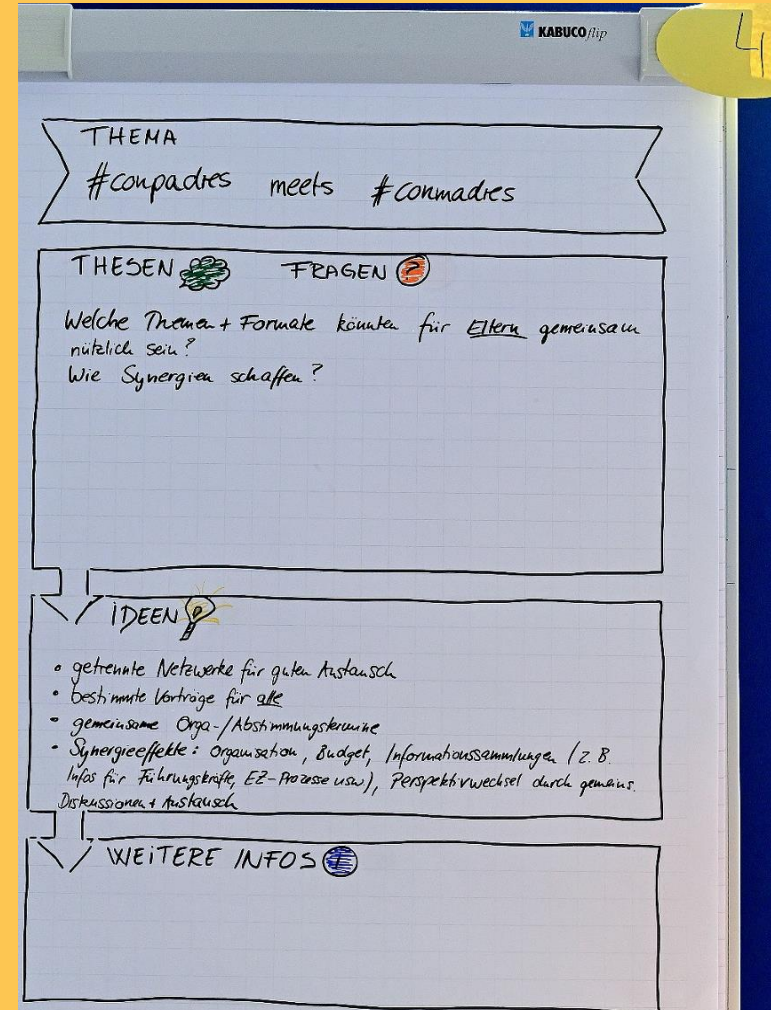 KABUCO flip
4
THEMA
#conpadres meets #conmadres
THESEN FRAGEN ?
Welche Themen + Formate könnten für Eltern gemeinsam
nützlich sein?
Wie Synergien schaffen?
IDEEN
• getrennte Netzwerke für guten Austausch
• bestimmte Vorträge für alle
• gemeinsame Orga-/Abstimmungstermine
• Synergieeffekte: Organisation, Budget, Informationssammlungen (z.B.
Infos für Führungskräfte, EZ-Prozesse usw), Perspektivwechsel durch gemeins.
Diskussionen + Austausch
WEITERE INFOS !